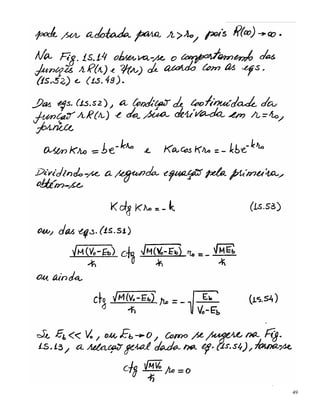 pode ser adotada para r>r₀, pois R(∞)→∞.
Na Fig. 15.14 observa-se o comportamento das
funções rR(r) e Ψ(r) de acordo com as eqs.
(15.52) e (15.49).
Das eqs. (15.52), a condição de continuidade da
função rR(r) e da sua derivada em r=r₀,
fornece
a sen Kr₀ = be^-kr₀ e Ka cos Kr₀ = -kbe^-kr₀
Dividindo-se a segunda equação pela primeira,
obtém-se
K ctg Kr₀ = -k (15.53)
ou, das eqs. (15.51)
√M(V₀-Eb)/ħ ctg √M(V₀-Eb)/ħ r₀ = - √MEb/ħ
ou ainda
ctg √M(V₀-Eb)/ħ r₀ = - √Eb/V₀-Eb (15.54)
Se Eb<< V₀, ou Eb→0, como se sugere na Fig.
15.13, a relação geral dada na eq. (15.54), torna-se
ctg √MV₀/ħ r₀ = 0
49